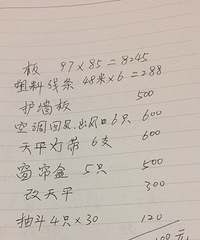 板 97×85=8245
塑料线条 48米×6=288
护墙板 500
空调回风.出风口6只 600
天平灯带 6支 600
窗帘盒 5只 500
改天平 300
抽斗4只×30 120
元